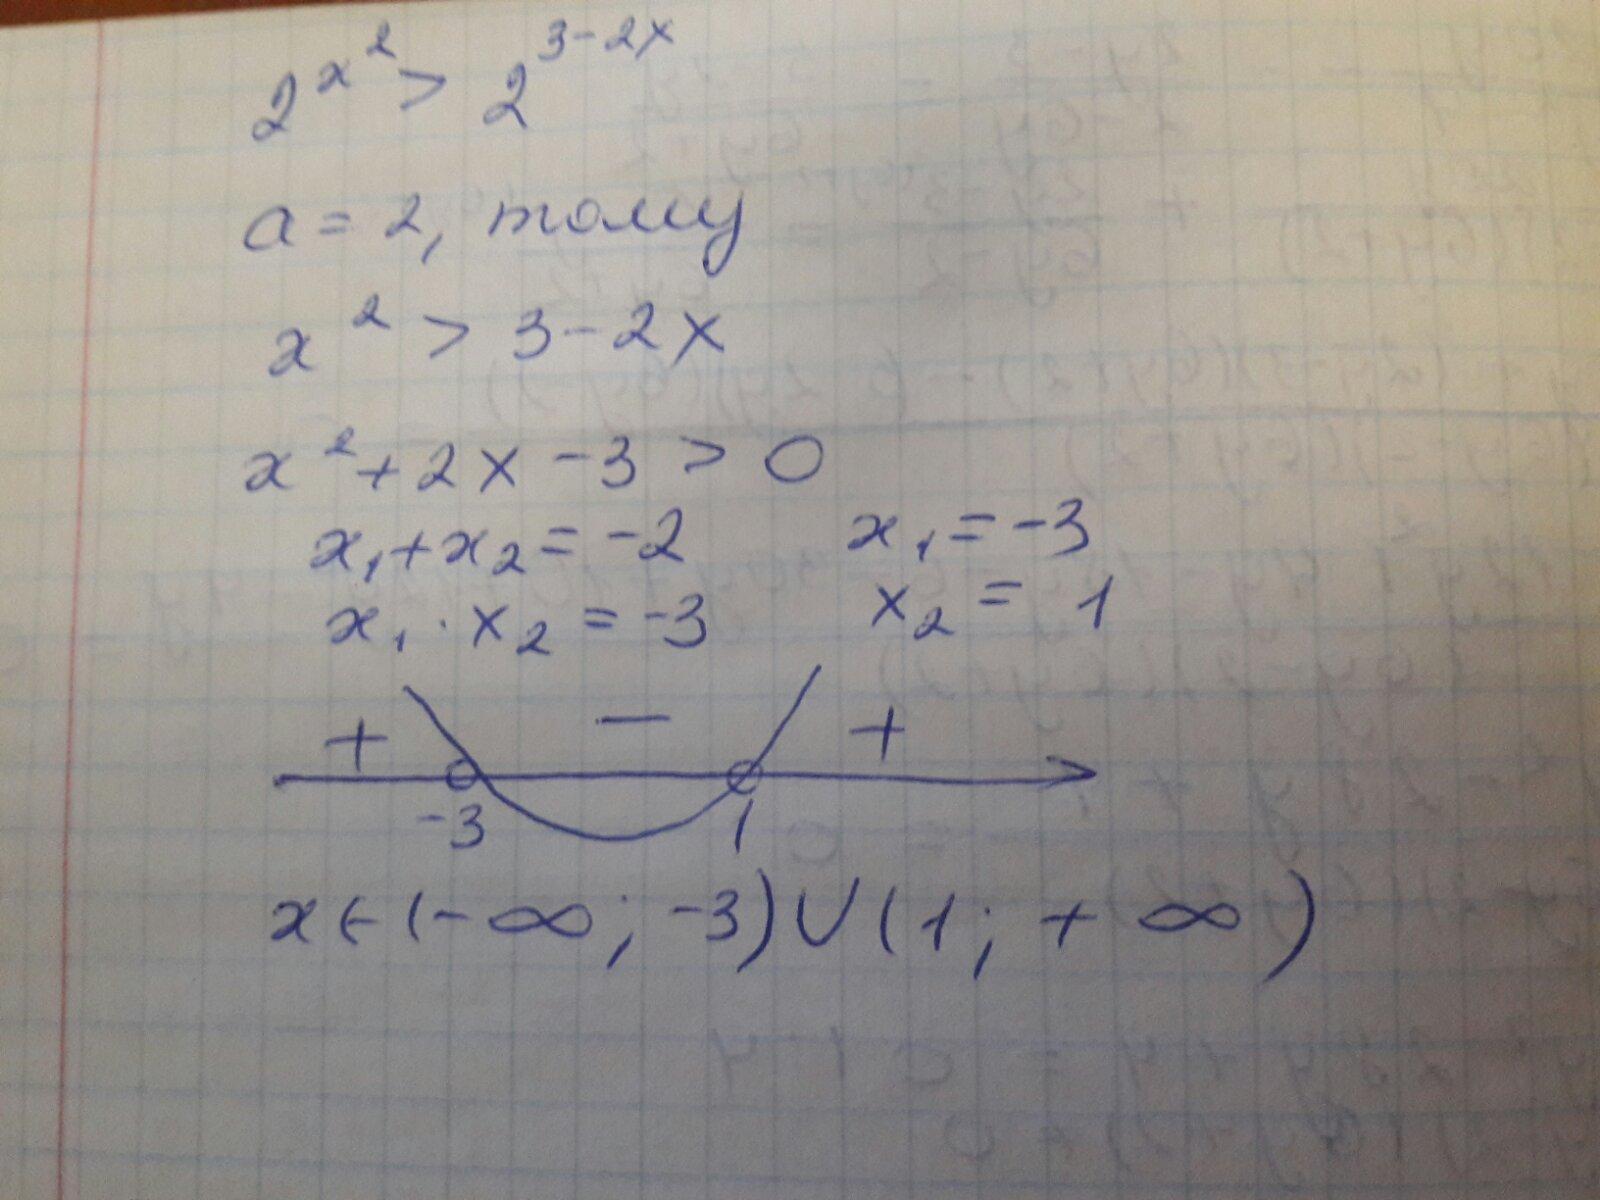 2^{x^2} > 2^{3-2x}
a = 2, тому
x^2 > 3-2x
x^2 + 2x - 3 > 0
x_1 + x_2 = -2 x_1 = -3
x_1 · x_2 = -3 x_2 = 1
+ − +
-3 1
x ∈ (-∞; -3) ∪ (1; +∞)